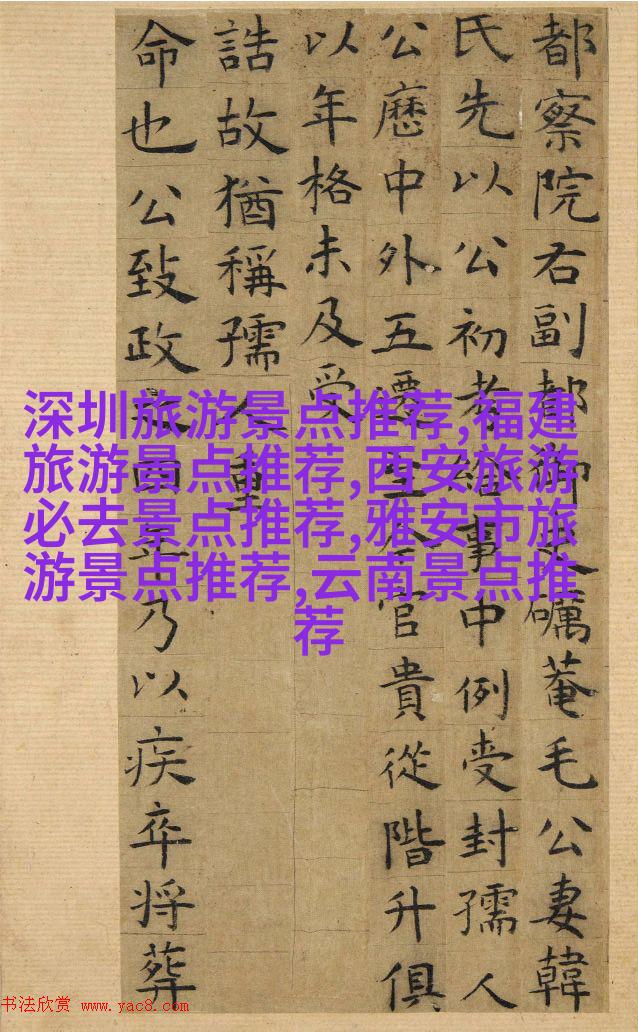 都察院右副都御史礪菴毛公妻韓
氏先以公初考給事中例受封孺人
公歷中外五遷至今官貴從階升俱
以年格未及受
誥故猶稱孺人重
命也公致政年乃以疾卒將葬
深圳旅游景点推荐,福建
旅游景点推荐,西安旅游
必去景点推荐,雅安市旅
游景点推荐,云南景点推
荐
书法欣赏 www.yac8.com